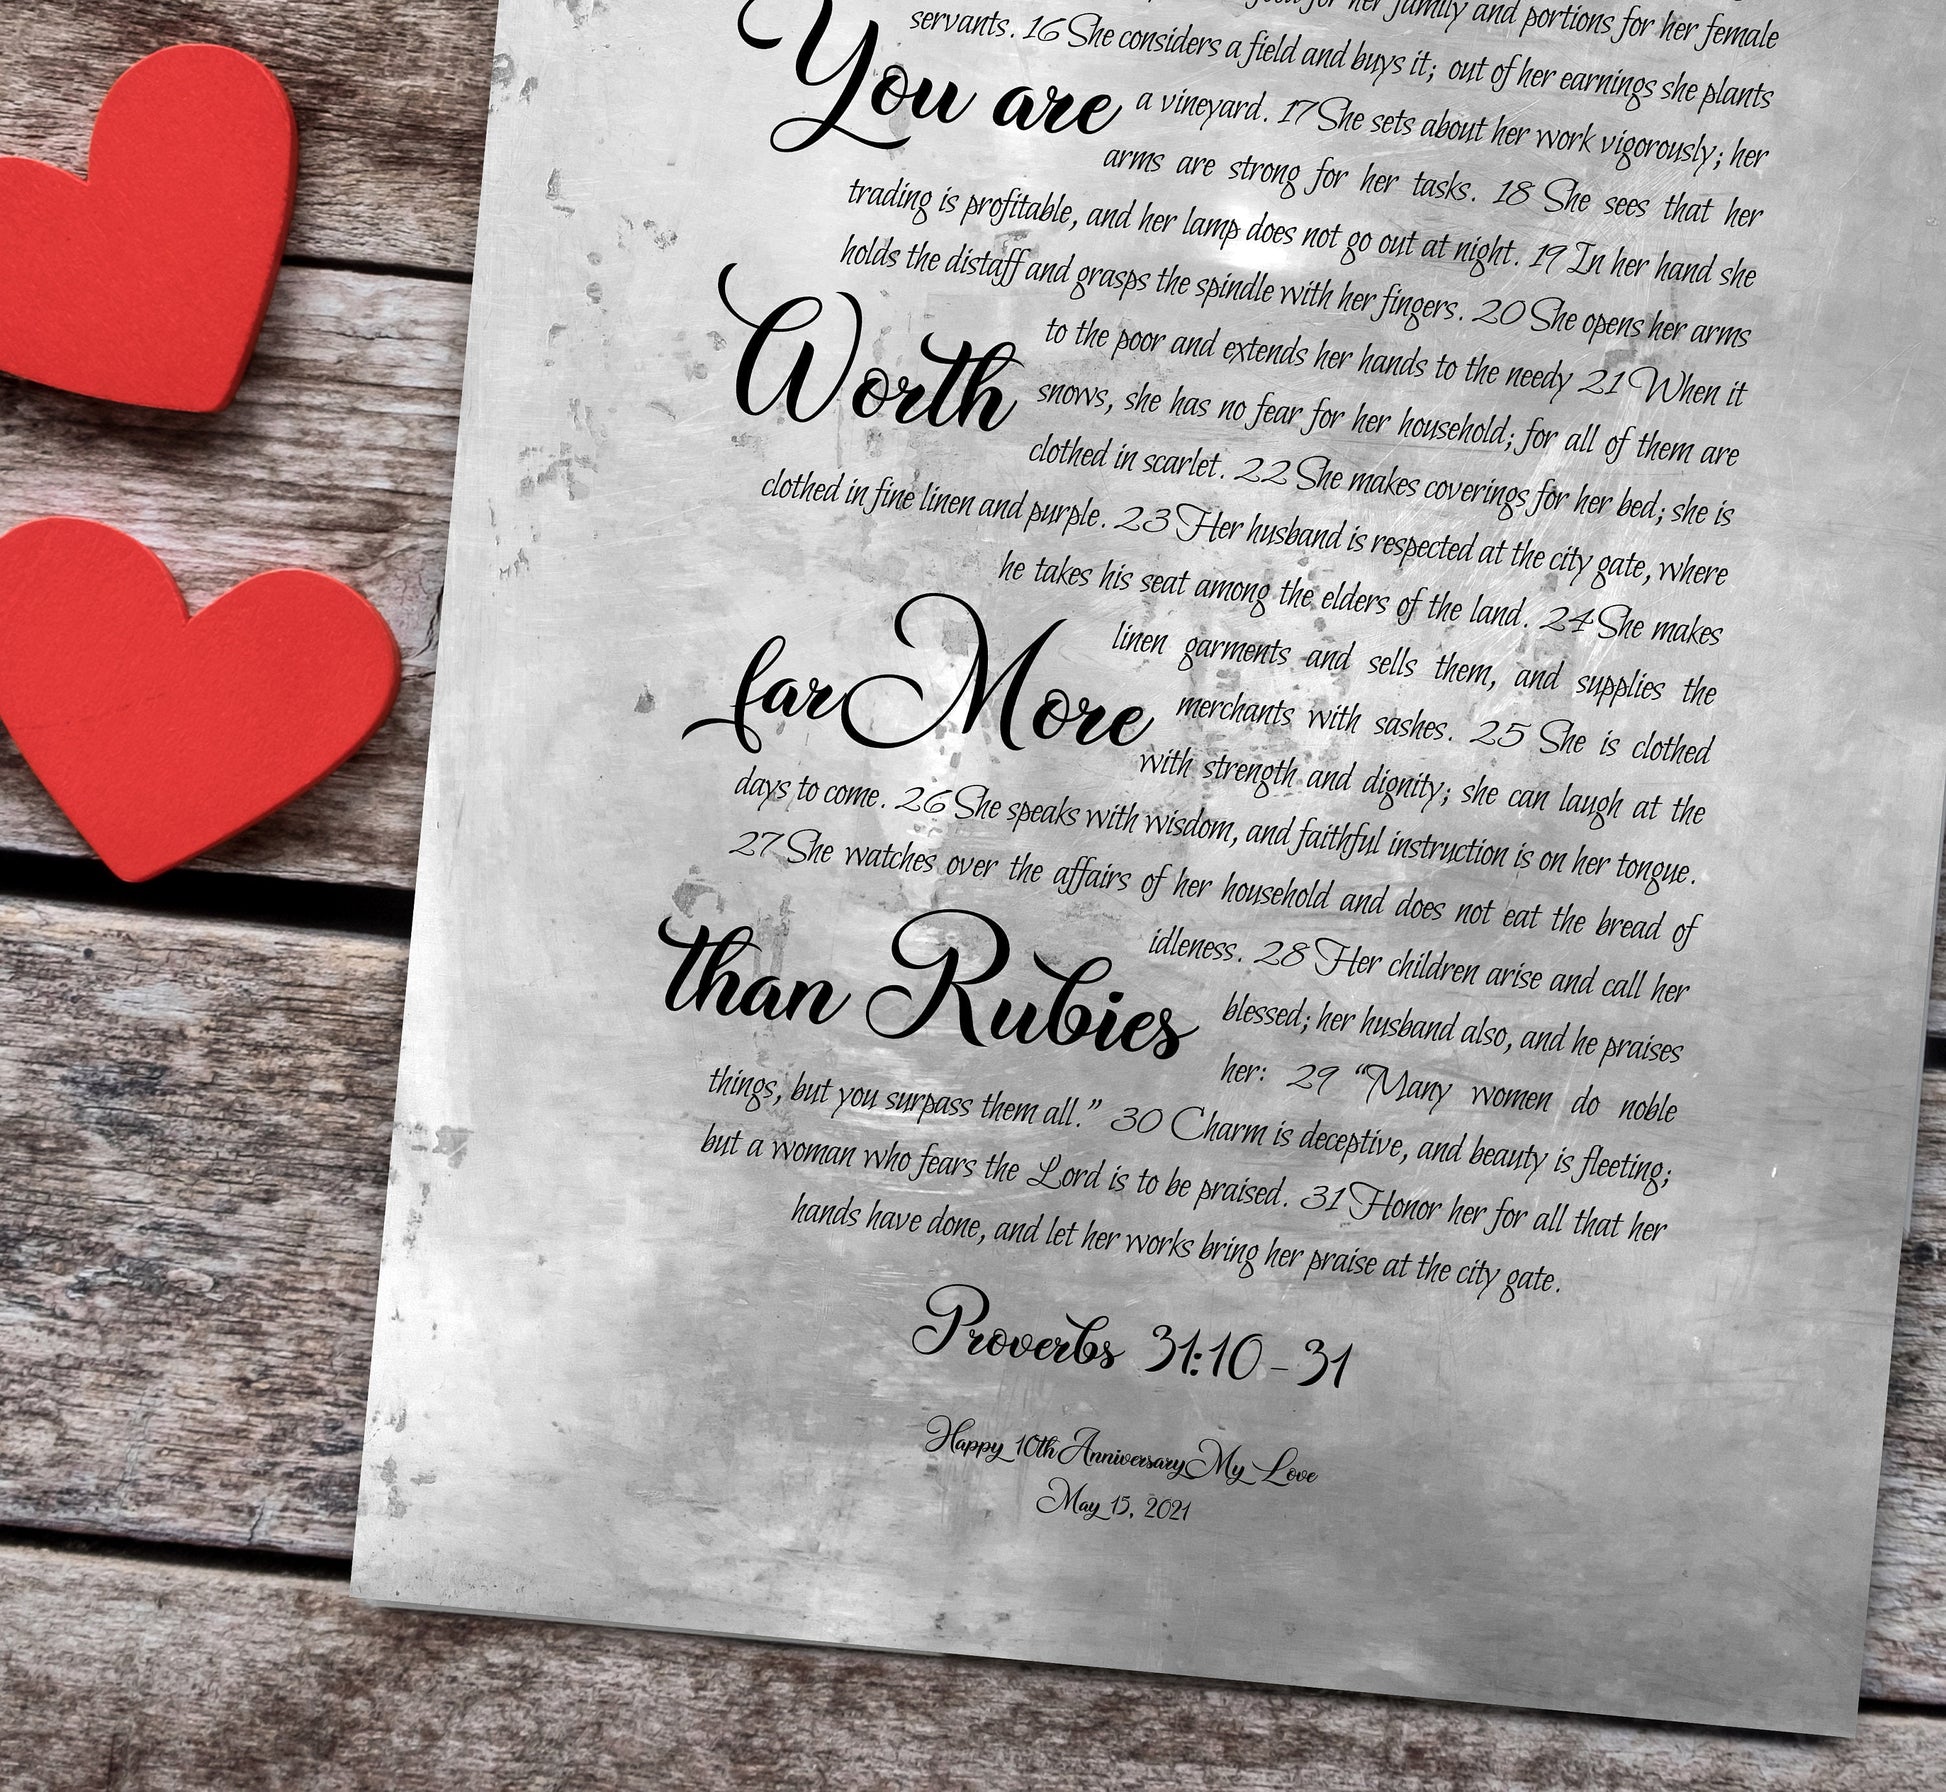 for her family and portions for her female
servants. 16 She considers a field and buys it; out of her earnings she plants
You are
a vineyard. 17 She sets about her work vigorously; her
arms are strong for her tasks. 18 She sees that her
trading is profitable, and her lamp does not go out at night. 19 In her hand she
holds the distaff and grasps the spindle with her fingers. 20 She opens her arms
Worth
to the poor and extends her hands to the needy 21 When it
snows, she has no fear for her household; for all of them are
clothed in scarlet. 22 She makes coverings for her bed; she is
clothed in fine linen and purple. 23 Her husband is respected at the city gate, where
he takes his seat among the elders of the land. 24 She makes
far More
linen garments and sells them, and supplies the
merchants with sashes. 25 She is clothed
with strength and dignity; she can laugh at the
days to come. 26 She speaks with wisdom, and faithful instruction is on her tongue.
27 She watches over the affairs of her household and does not eat the bread of
than Rubies
idleness. 28 Her children arise and call her
blessed; her husband also, and he praises
her: 29 “Many women do noble
things, but you surpass them all.” 30 Charm is deceptive, and beauty is fleeting;
but a woman who fears the Lord is to be praised. 31 Honor her for all that her
hands have done, and let her works bring her praise at the city gate.
Proverbs 31:10-31
Happy 10th Anniversary My Love
May 15, 2021